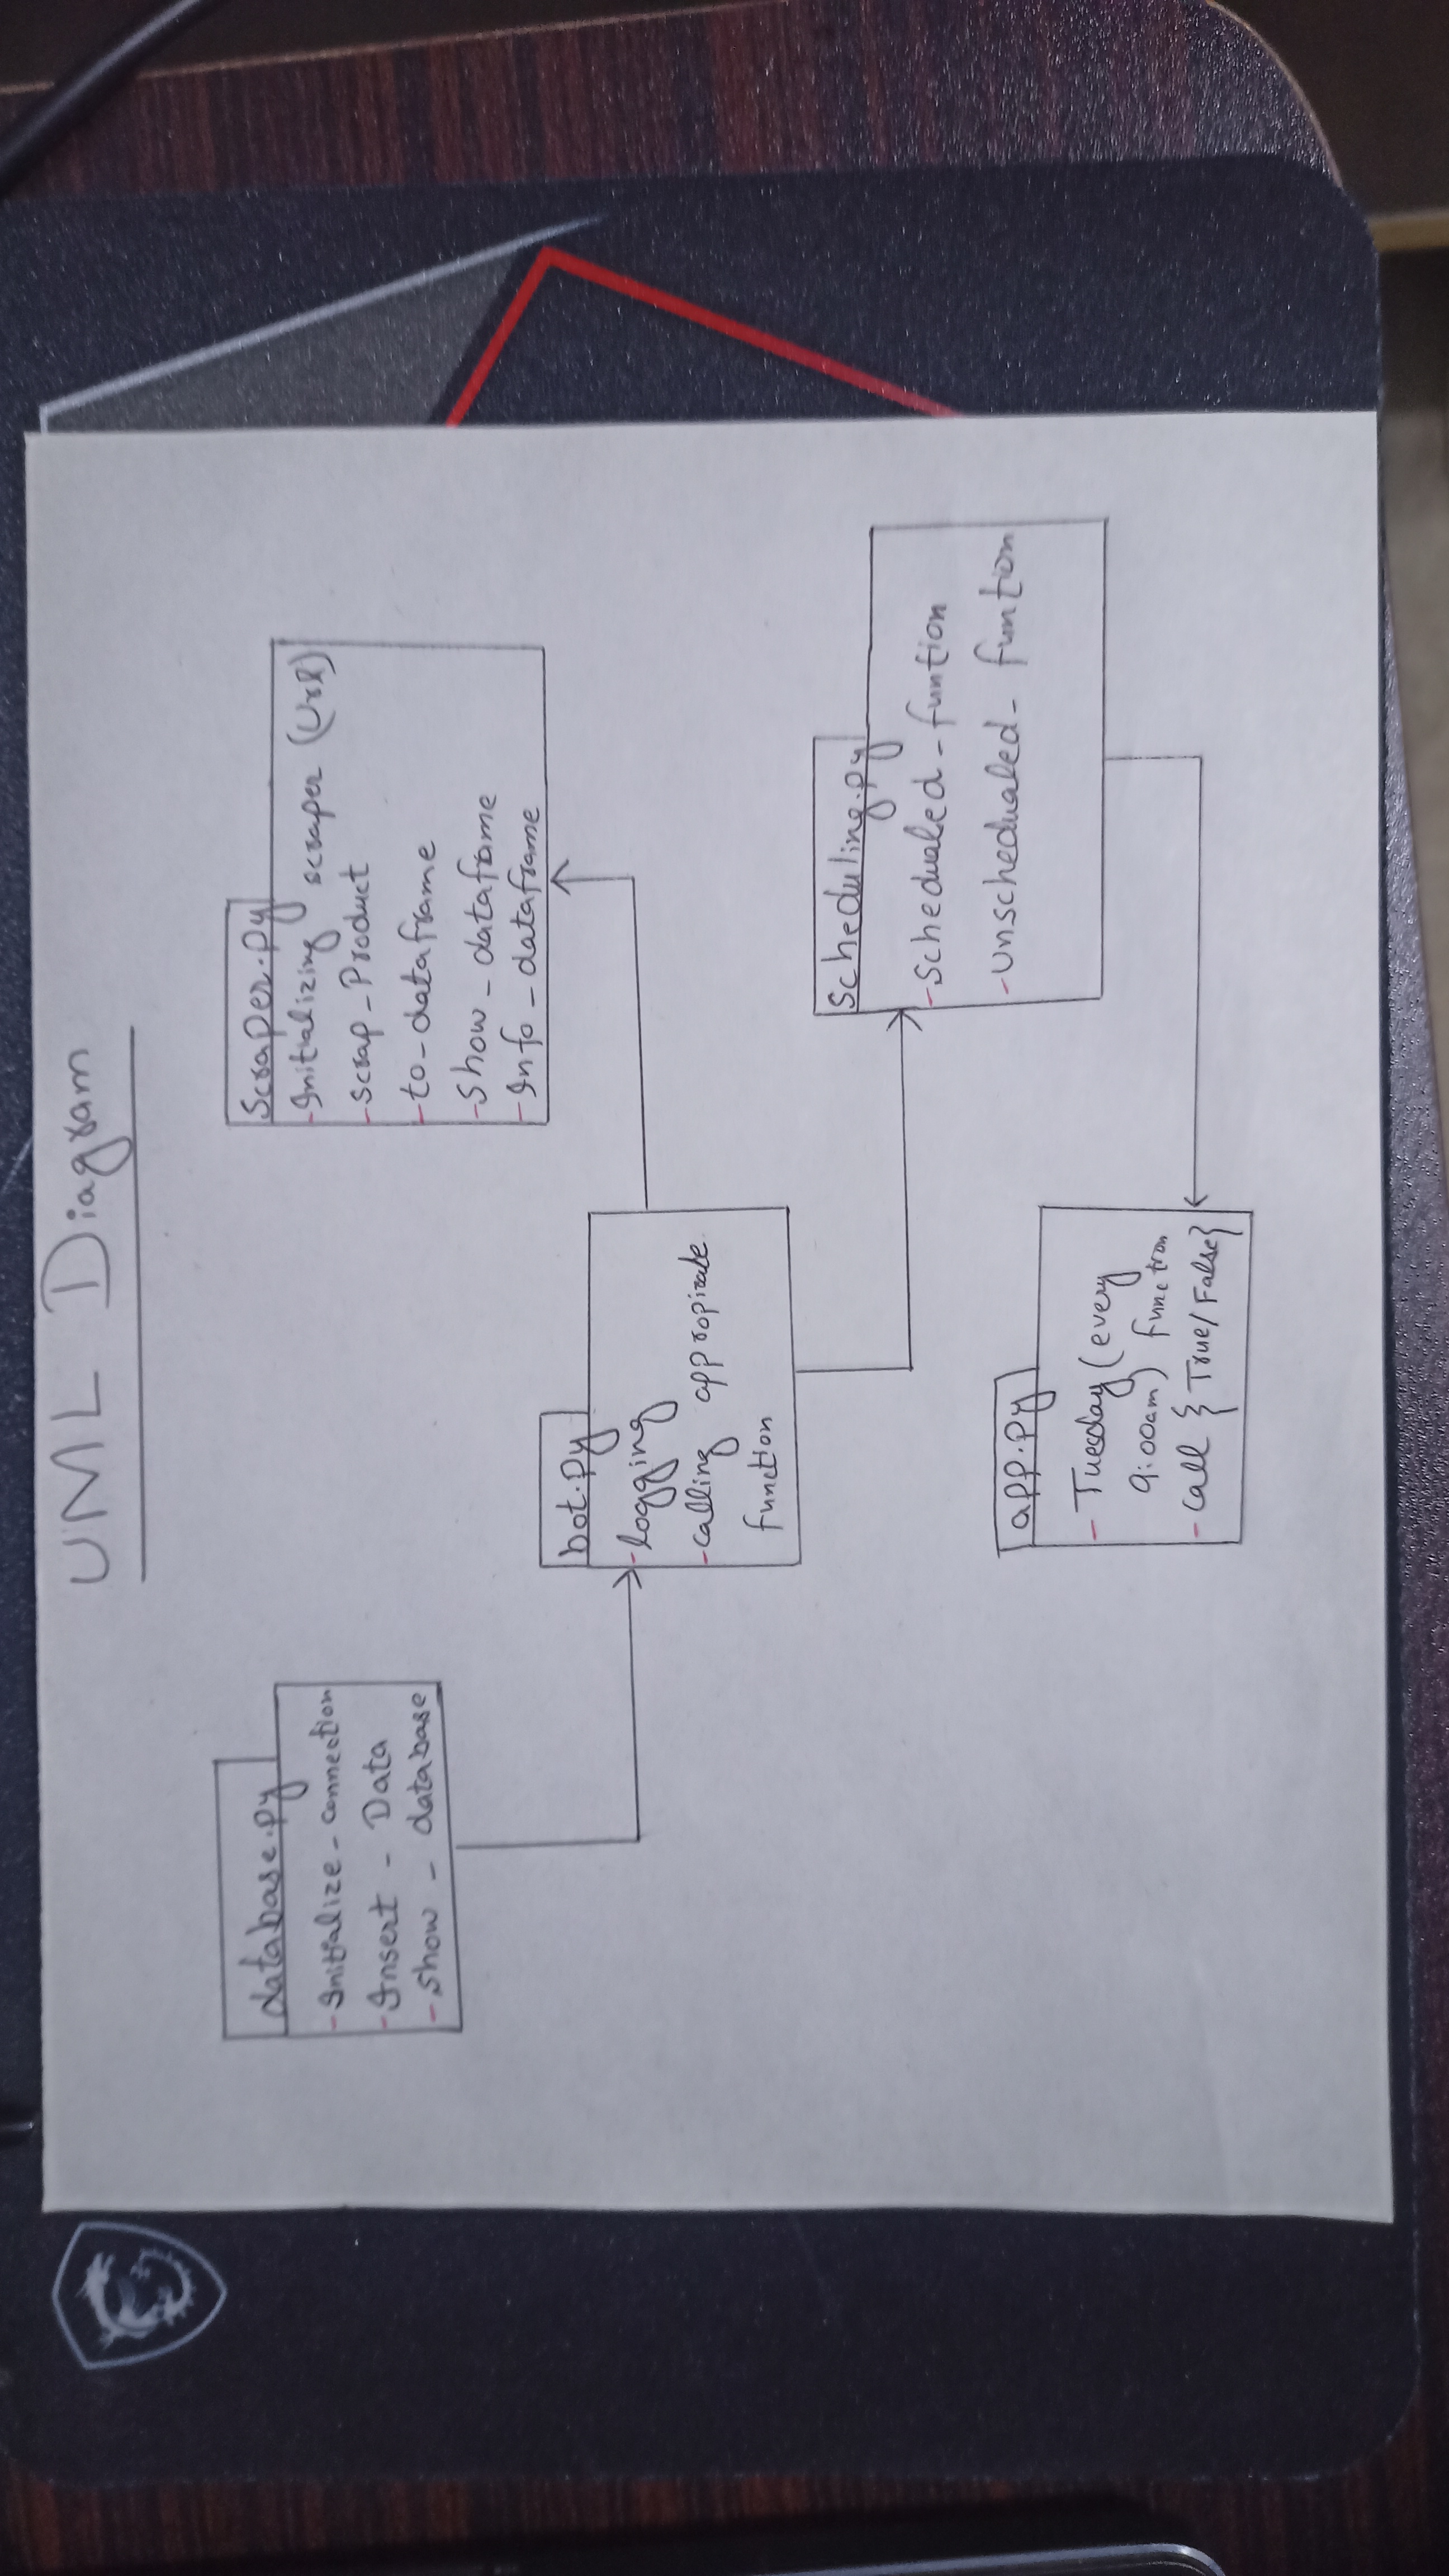 UML Diagram
database.py
- Initialize - connection
- Insert - Data
- show - database
Scraper.py
- Initializing scraper (Url)
- scrap - Product
- to - dataframe
- Show - dataframe
- Info - dataframe
bot.py
- logging
- calling appropirate
function
Scheduling.py
- Schedualed - funtion
- Unschedualed - funtion
app.py
- Tuesday (every
9:00am) function
- Call { True/False}